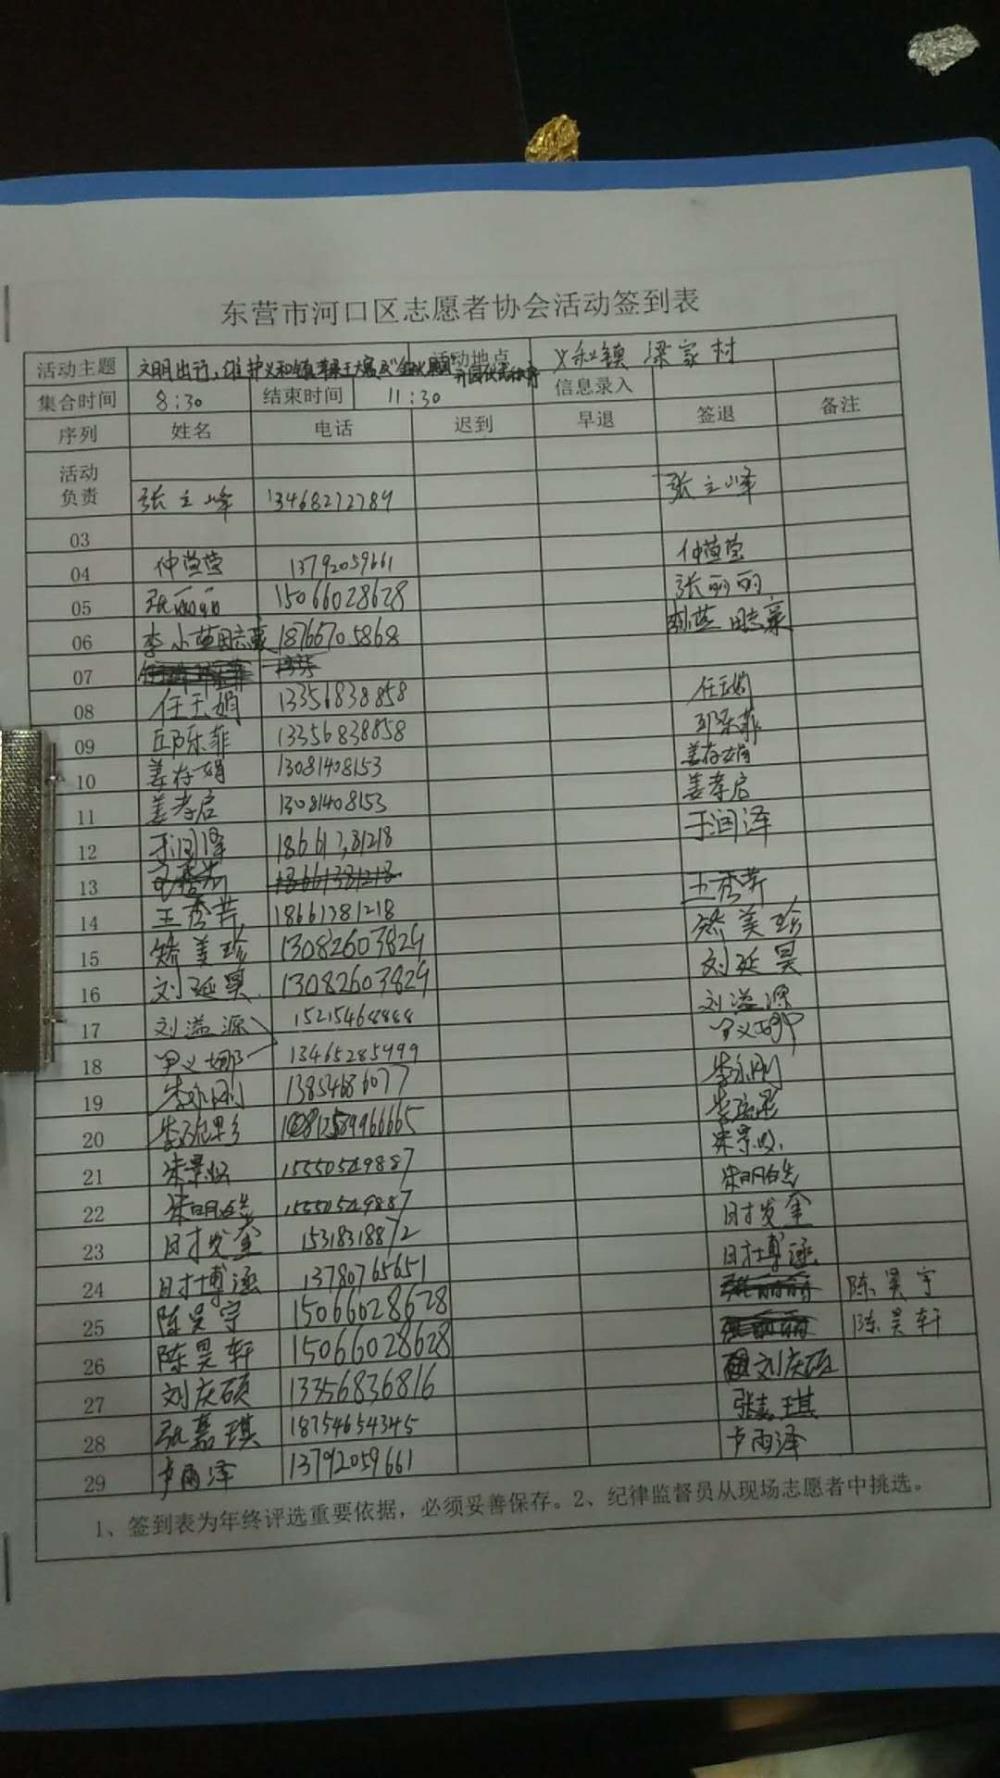 东营市河口区志愿者协会活动签到表
活动主题 文明出行,维护义和镇 活动地点 义和镇 梁家村
集合时间 8:30 结束时间 11:30 信息录入
序列 姓名 电话 迟到 早退 签退 备注
活动负责 张立峰 13468272789 张立峰
03
04 仲莹莹 13792059661 仲莹莹
05 张丽丽 15066028628 张丽丽
06 李小燕 田志豪 18766705868 田志豪
07
08 任玉娟 13356838858 任玉娟
09 邱乐菲 13356838858 邱乐菲
10 姜存娟 13081408153 姜存娟
11 姜孝启 13081408153 姜孝启
12 于润泽 18661381218 于润泽
13 18661381218
14 王秀芹 18661381218 王秀芹
15 矫美珍 13082603829 矫美珍
16 刘延昊 13082603829 刘延昊
17 刘溢源 15215468888 刘溢源
18 义娜 13465285499 义娜
19 李永刚 13854686077 李永刚
20
21 朱景 15550549887 朱景
22 朱明皓 15550549887 朱明皓
23 时发奎 15318318872 时发奎
24 时博涵 13780765651 时博涵
25 陈昊宇 15066028628 陈昊宇
26 陈昊轩 15066028628 陈昊轩
27 刘庆硕 13356836816 刘庆硕
28 张嘉琪 18754654345 张嘉琪
29 卢雨泽 13792059661 卢雨泽
1、签到表为年终评选重要依据，必须妥善保存。2、纪律监督员从现场志愿者中挑选。